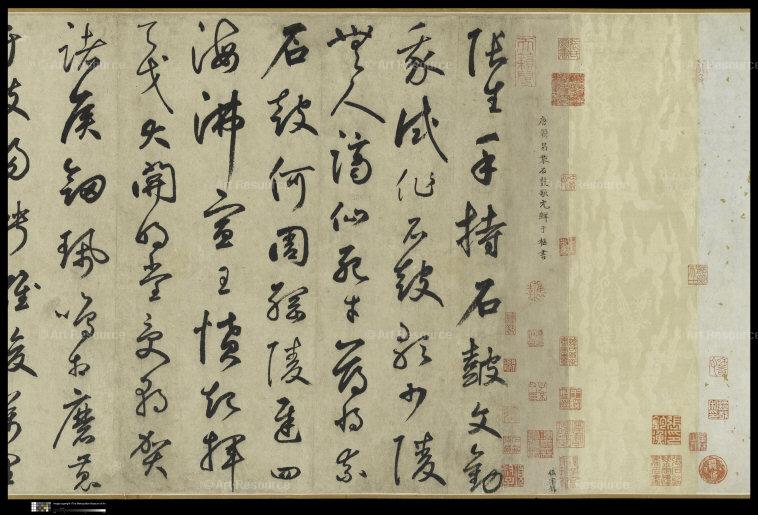 唐韓昌黎石鼓歌元鮮于樞書
張生手持石鼓文勸
我試作石鼓歌少陵
無人謫仙死才薄將奈
石鼓何周綱陵遲四
海沸宣王憤起揮
天戈大開明堂受朝賀
諸侯劍珮鳴相磨蒐
于岐陽騁雄俊萬里
© Art Resource